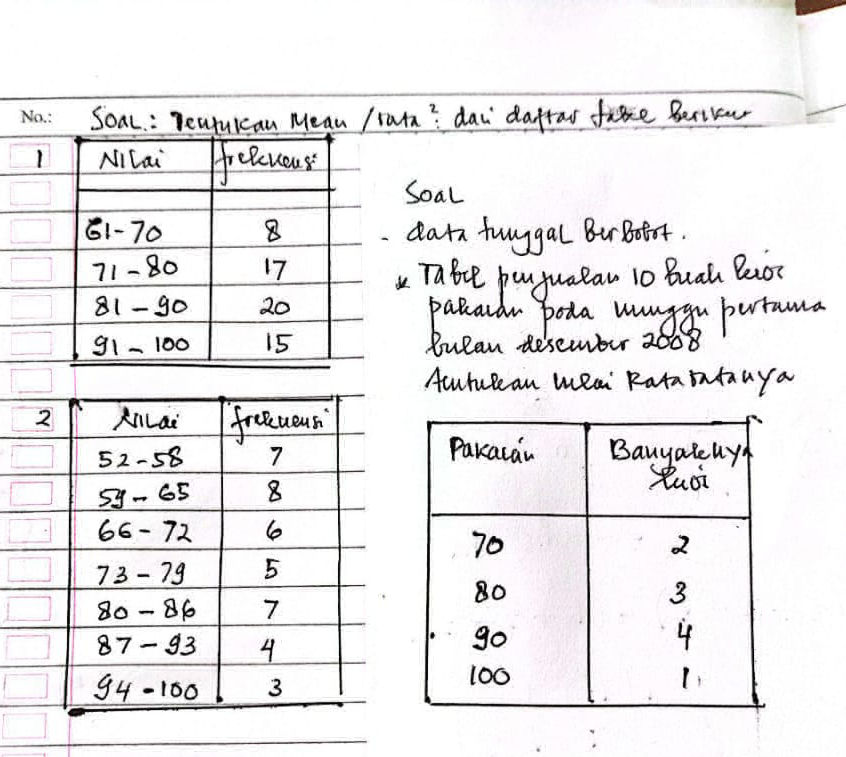 No.: SOAL: Tentukan Mean / rata²: dari daftar tabe berikut
1 Nilai frekuensi
61-70 8
71-80 17
81-90 20
91-100 15
2 Nilai frekuensi
52-58 7
59-65 8
66-72 6
73-79 5
80-86 7
87-93 4
94-100 3
Soal
- data tunggal Berbobot.
* Tabel penjualan 10 buah
pakaian pada minggu pertama
bulan desember 2008
Rataratanya
Pakaian Banyaknya
70 2
80 3
90 4
100 1